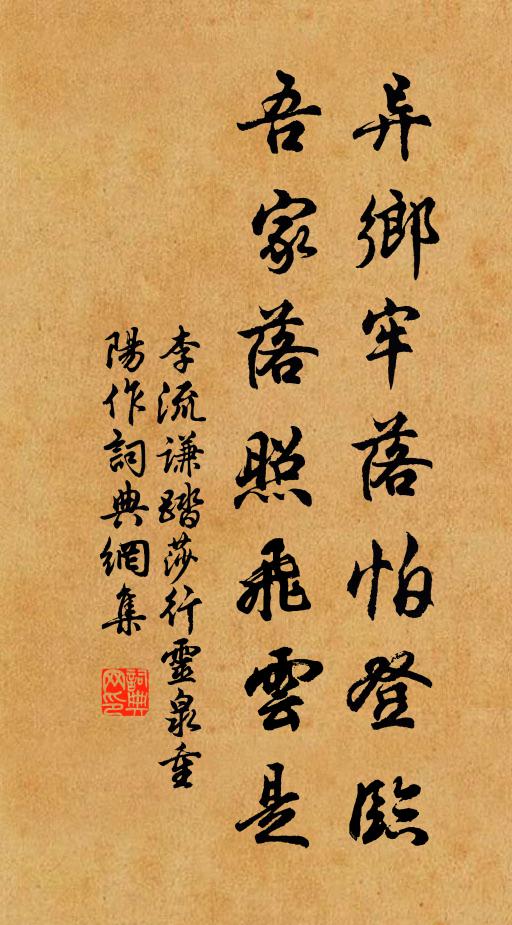 异鄉牢落怕登臨
吾家落照飛雲是
李流谦踏莎行靈泉重
陽作詞典網集
詞典网印